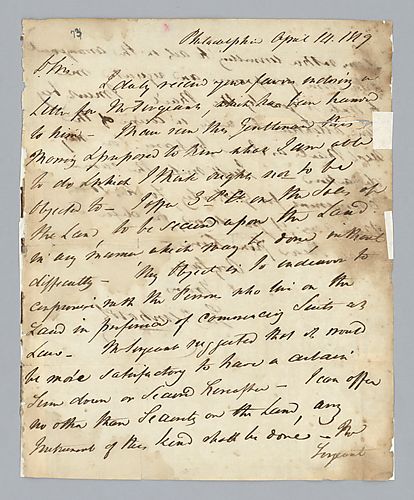 73
Philadelphia April 14. 1819
Sir
I duly recd your favor inclosing a
Letter for Mr Sergeant, which has been handed
to him – I have seen this Gentleman this
Morning & proposed to him what I am able
to do & which I think ought not to be
objected to – I offer 3 on the Sales of
the Land, to be secured upon the Land
in any manner which may be done without
difficulty – My Object is to endeavor to
compromise with the Persons who live on the
Land in preference of commencing Suits at
Law – Mr Sergeant suggested that it would
be more satisfactory to have a certain
Sum down or Secured hereafter – I can offer
no other than Security on the Land, any
Instrument of this kind shall be done – Mr
Sergeant